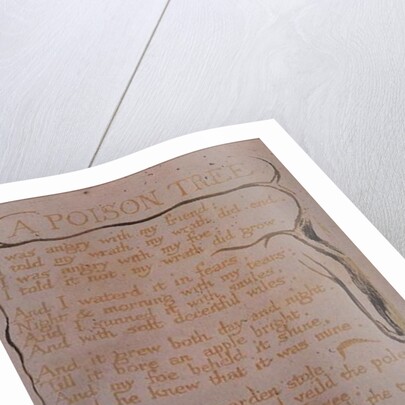 A POISON TREE
was angry with my friend;
I told my wrath my wrath did end.
I was angry with my foe:
I told it not my wrath did grow.
And I waterd it in fears,
Night & morning with my tears:
And I sunned it with smiles,
And with soft deceitful wiles.
And it grew both day and night,
Till it bore an apple bright.
And my foe beheld it shine,
he knew that it was mine
garden stole,
veild the pole